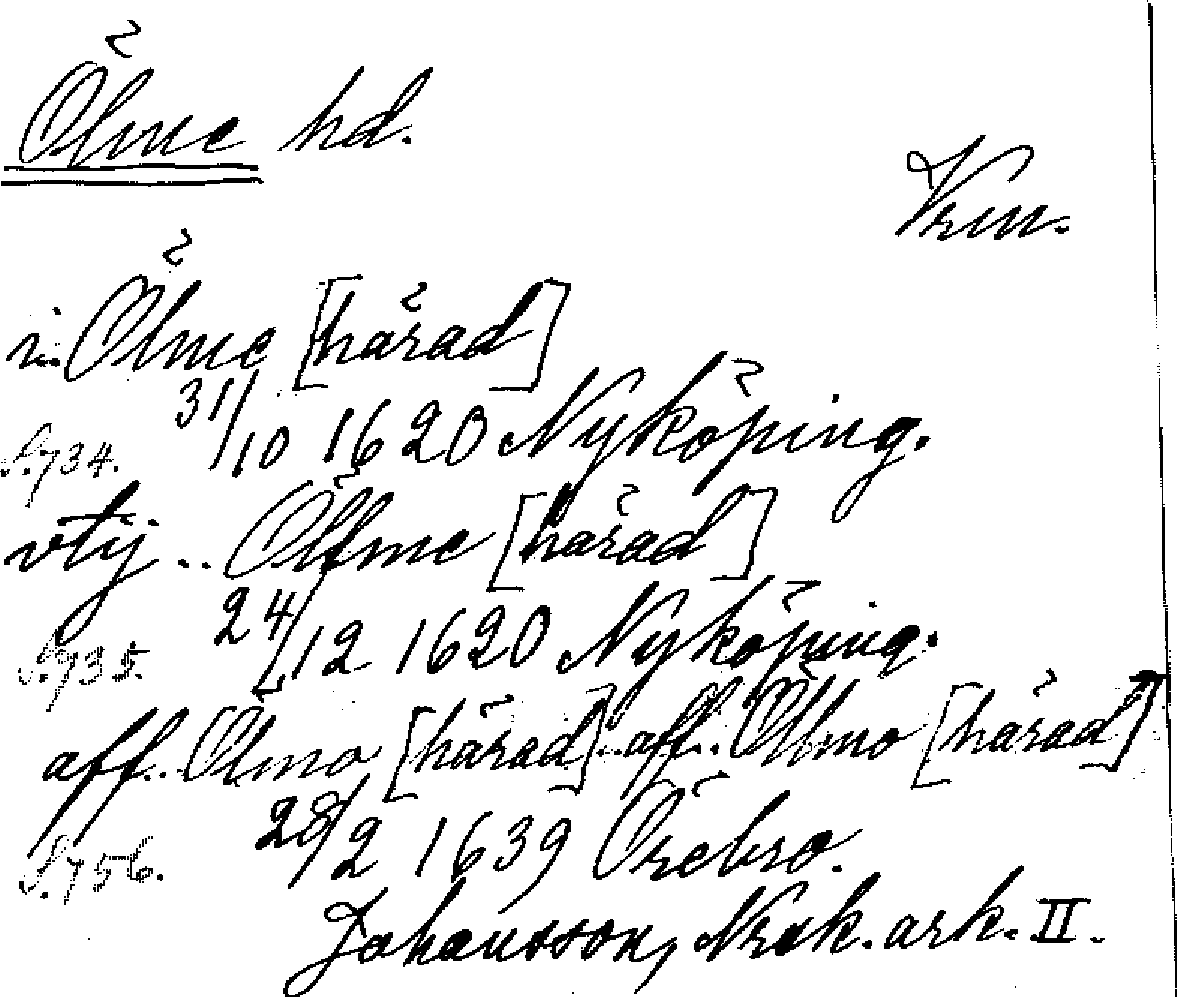 Ölme hd.
Vrm.
i.. Ölme [härad]
31/10 1620 Nyköping.
S. 734.
vtij .. Ölfme [härad]
24/12 1620 Nyköping.
S. 735.
aff.. Ölmo [härad]; aff.. Ölmo [härad]
28/2 1639 Örebro.
S. 756.
Johansson, Nrsk. ark. II.